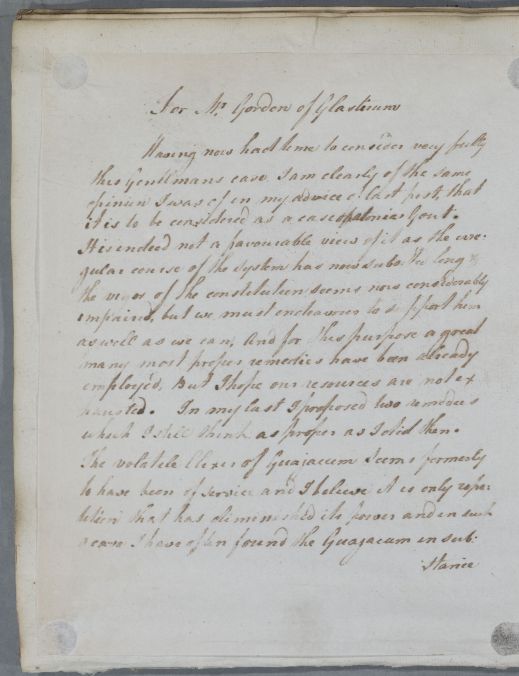 For Mr Gordon of Glastirum
Having now had time to consider very fully
this Gentlmans case I am clearly of the same
opinion I was of in my advice of last post, that
it is to be considered as a case of atonic Gout.
It is indeed not a favourable view of it as the irre-
gular course of the system has now subsisted long &
the vigor of the constitution seems now considerably
impaired, but we must endeavour to support him
as well as we can, And for this purpose a great
many most proper remedies have been already
employed, But I hope our resources are not ex
hausted. In my last I proposed two remedies
which I still think as proper as I did then.
The volatile Elixir of Guajacum seems formerly
to have been of service and I believe it is only repe
tition that has diminished its power and in such
a case I have often found the Guajacum in sub:
stance